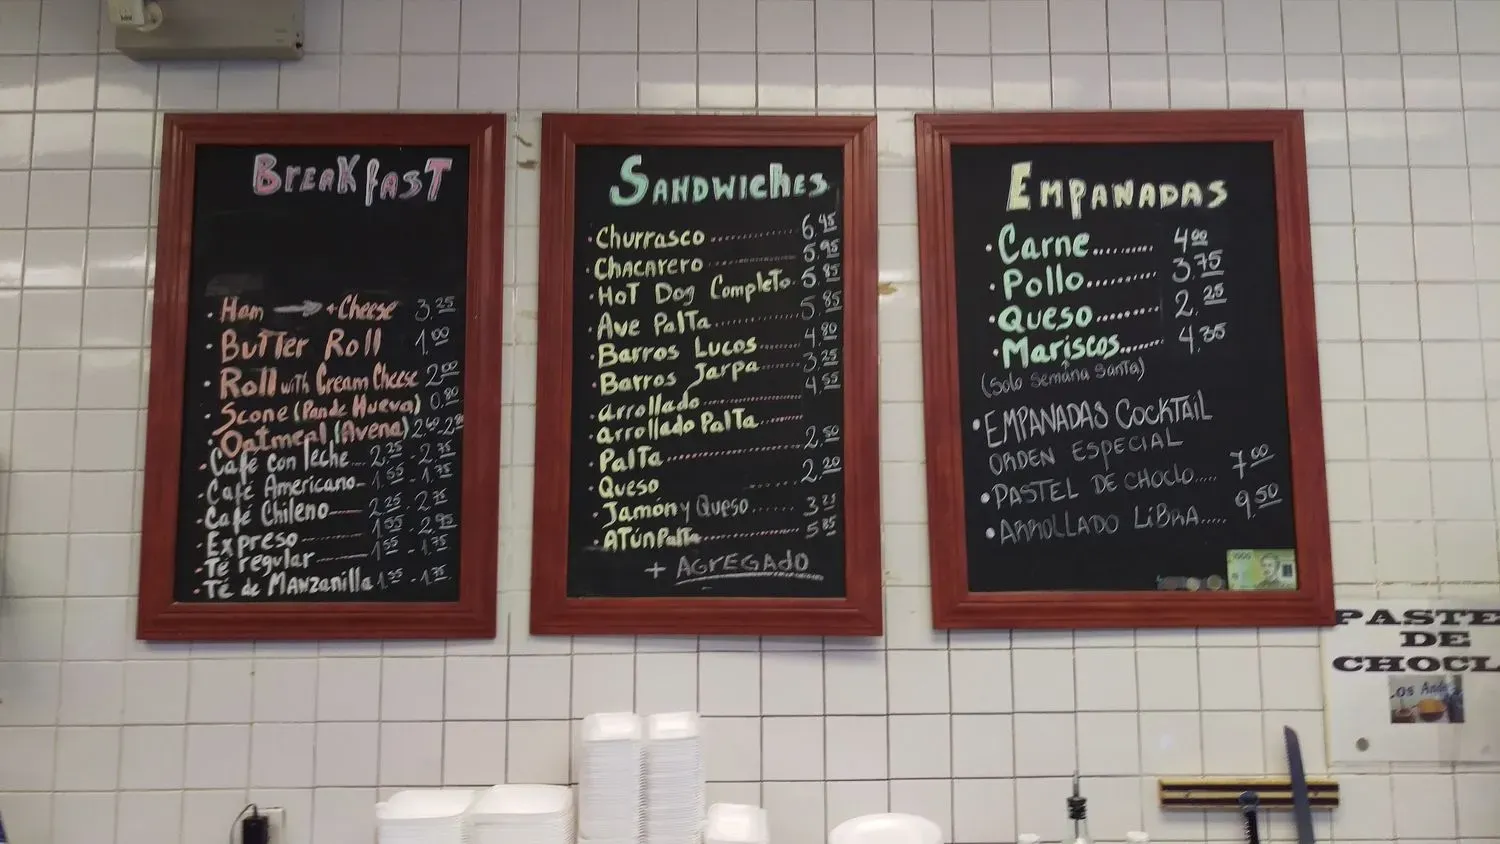 BreaKfasT
· Ham → + Cheese 3.25
· BuTTer Roll 1.00
· Roll with Cream Cheese 2.00
· Scone (Pan de Hueva) 0.80
· Oatmeal (Avena) 2.60-2.80
· Café con leche... 2.25 - 2.75
· Café Americano- 1.55 - 1.75
· Café Chileno 2.25 - 2.75
· Expreso 1.55 - 2.95
· Té regular 1.55 - 1.75
· Té de MANzanilla 1.55 - 1.75
SANDWICHES
· Churrasco 6.45
· Chacarero 5.95
· HoT Dog CompleTo 5.85
· Ave PalTa 5.85
· Barros Lucos 4.80
· Barros Jarpa 3.25
· arrollado 4.55
· arrollado PalTa
· PalTa 2.50
· Queso 2.20
· Jamón y Queso 3.25
· ATún PalTa 5.85
+ AGREGADO
EMPANADAS
· Carne 4.00
· Pollo 3.75
· Queso 2.25
· Mariscos 4.35
(Solo Semana Santa)
· EMPANADAS COCKTAIL
ORDEN ESPECIAL
· PASTEL DE CHOCLO..... 7.00
· ARROLLADO LIBRA..... 9.50
1000
PASTE
DE
CHOCL
Los And